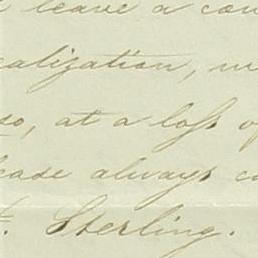 leave a con
alization, m
so, at a loss o
ease always c
t. Sterling.